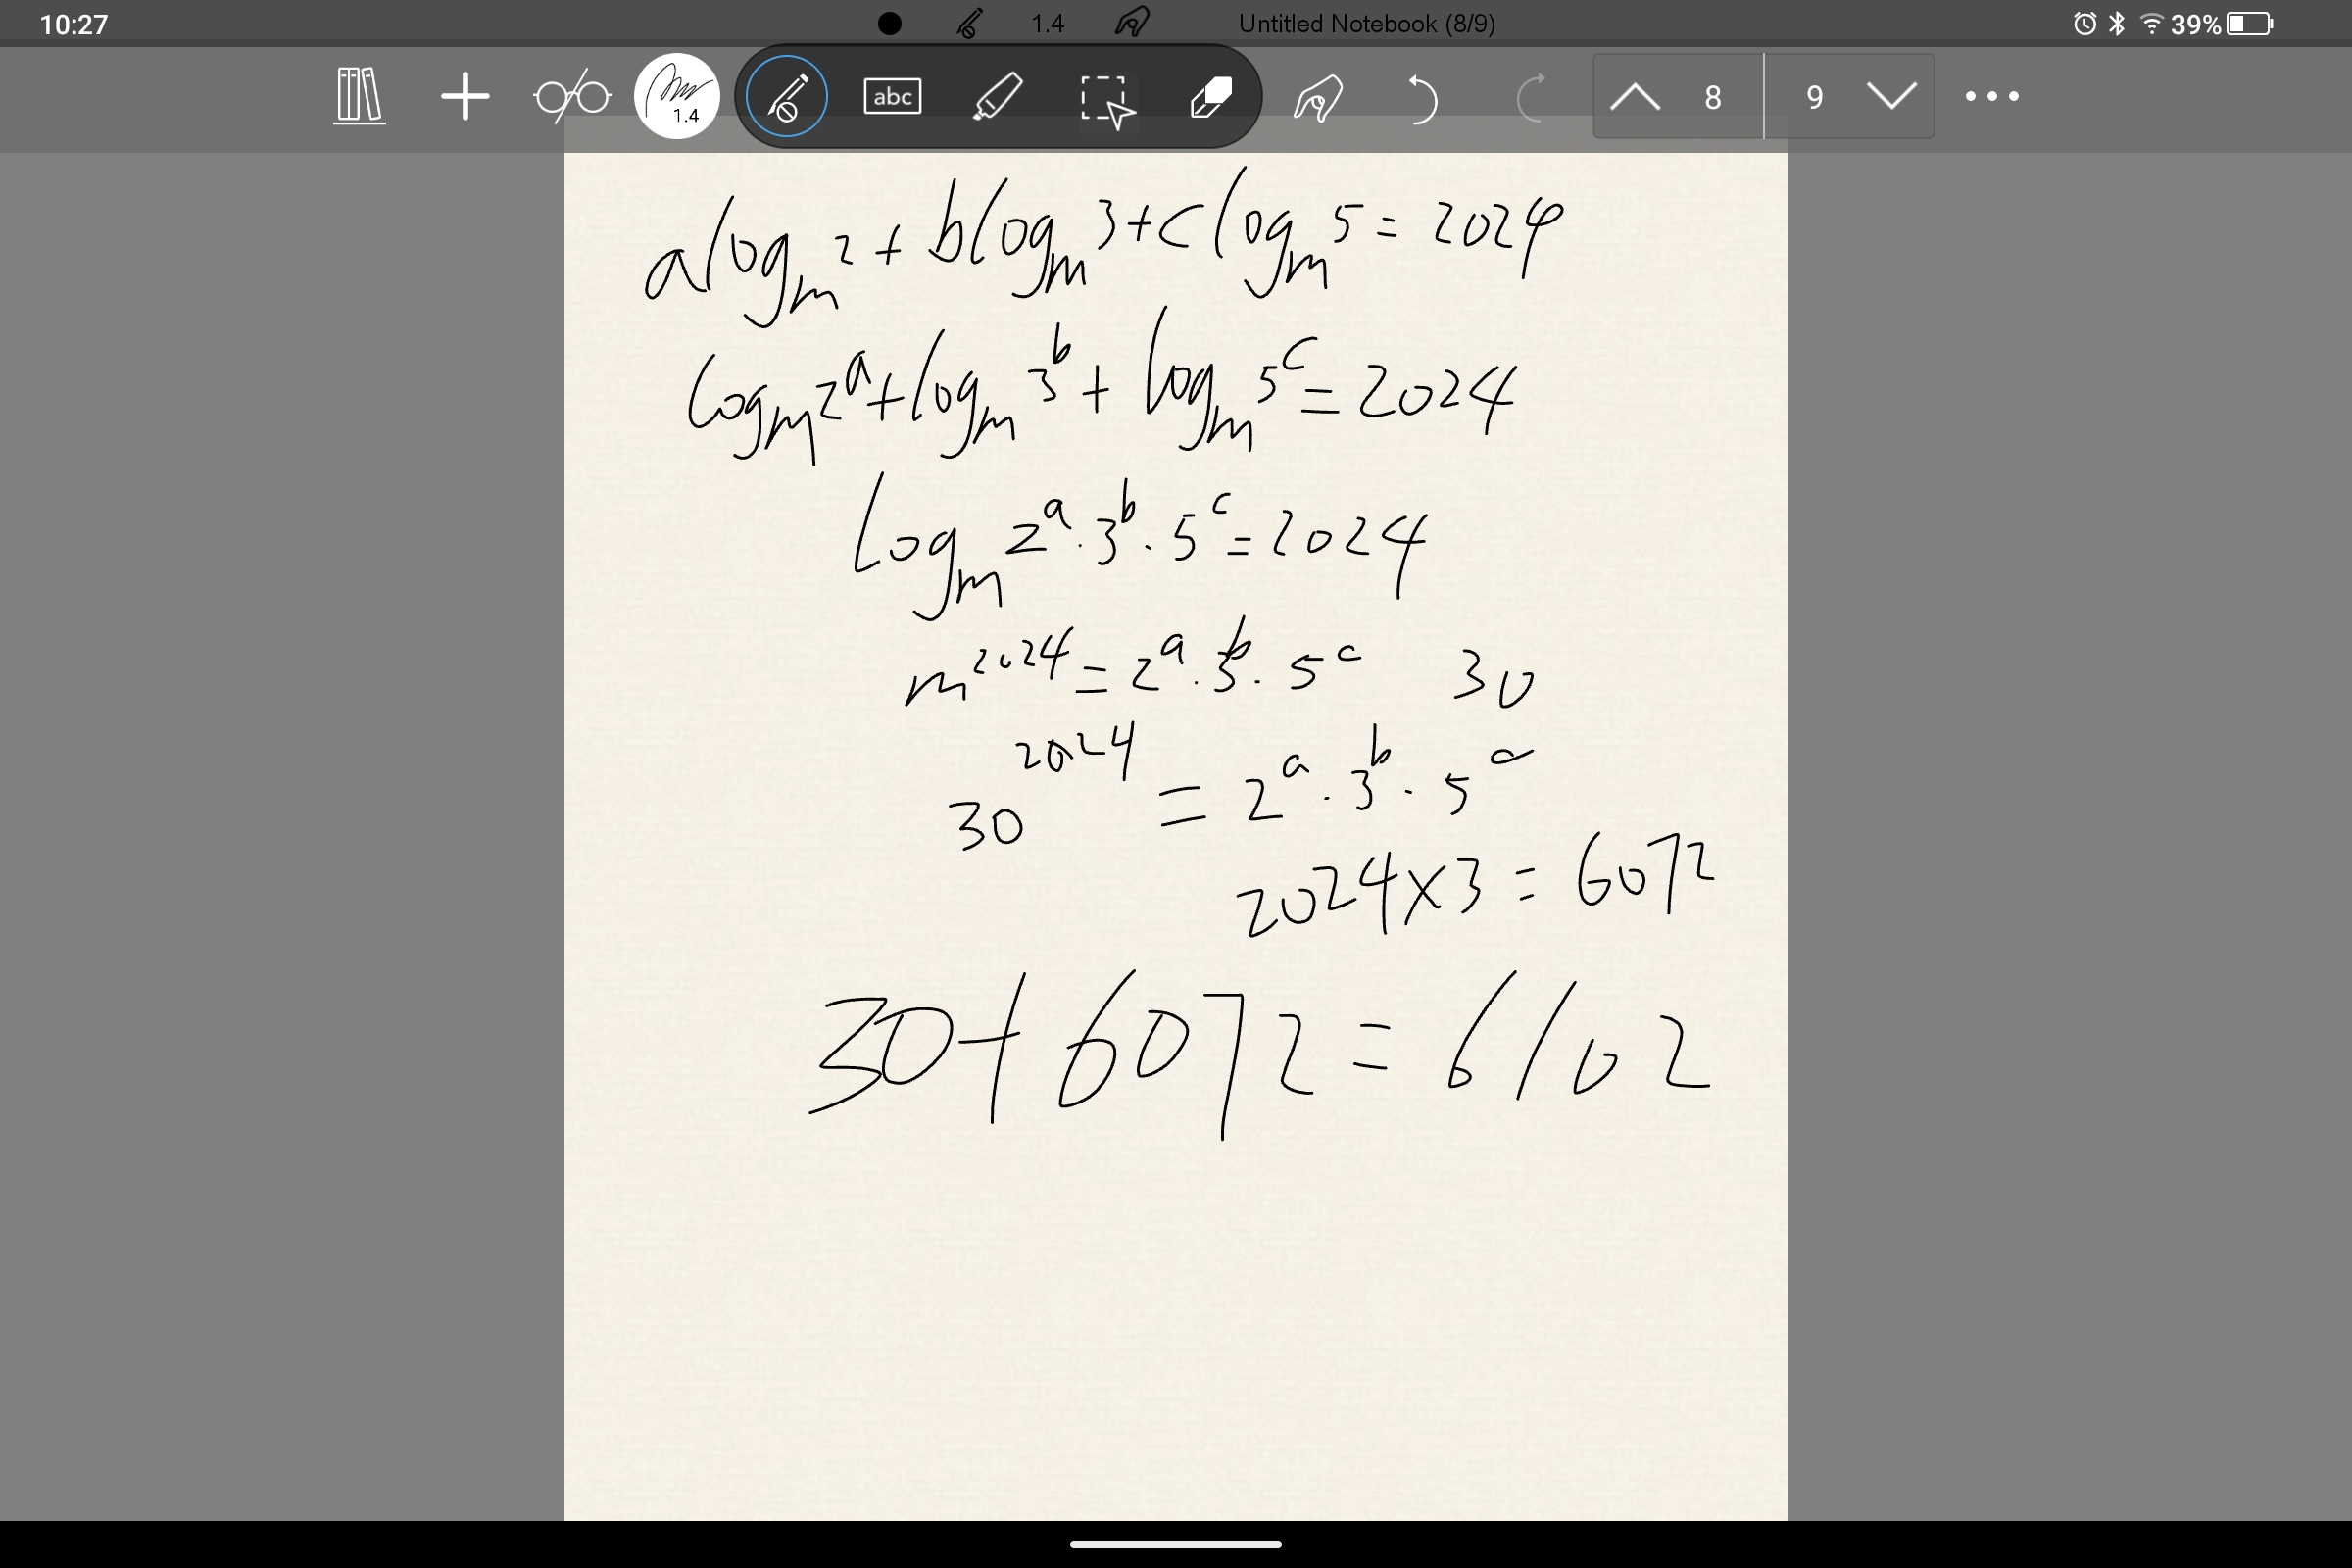 10:27 1.4 Untitled Notebook (8/9) 39%
1.4 abc 8 9
alogₘ2 + blogₘ3 + clogₘ5 = 2024
logₘ2ᵃ + logₘ3ᵇ + logₘ5ᶜ = 2024
logₘ 2ᵃ · 3ᵇ · 5ᶜ = 2024
m²⁰²⁴ = 2ᵃ · 3ᵇ · 5ᶜ 30
30²⁰²⁴ = 2ᵃ · 3ᵇ · 5ᶜ
2024 × 3 = 6072
30 + 6072 = 6102